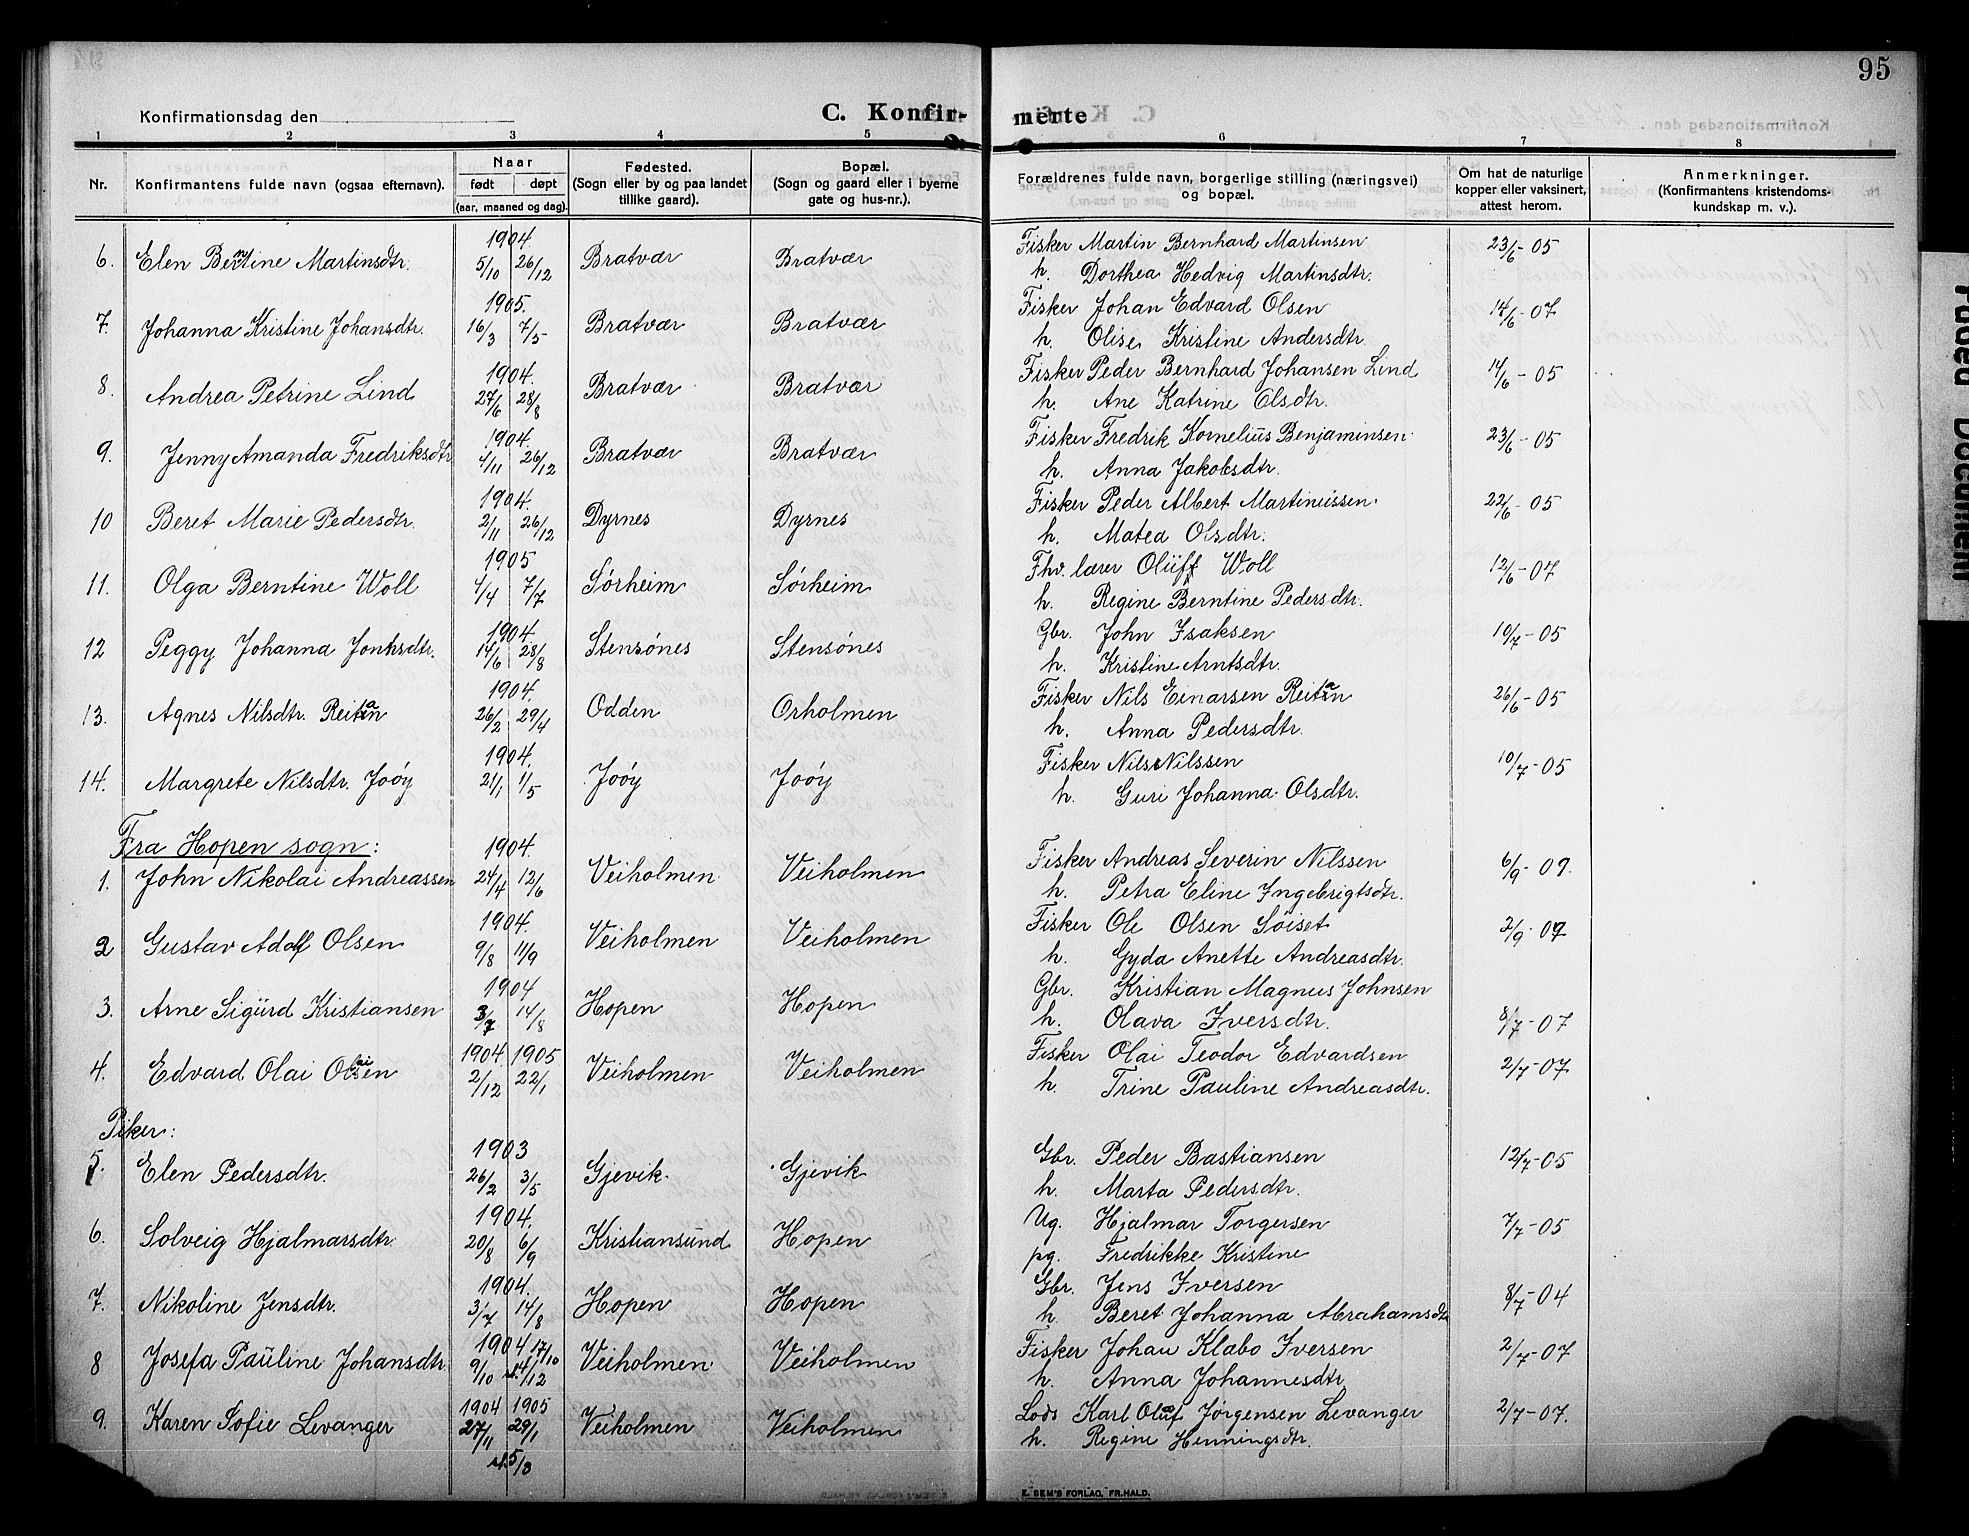 95
Konfirmationsdag den
C. Konfir-
merte
1 2 3 4 5 6 7 8
Nr. Konfirmantens fulde navn (ogsaa efternavn). Naar født døpt (aar, maaned og dag). Fødested. (Sogn eller by og paa landet tillike gaard). Bopæl. (Sogn og gaard eller i byerne gate og hus-nr.). Forældrenes fulde navn, borgerlige stilling (næringsvei) og bopæl. Om hat de naturlige kopper eller vaksinert, attest herom. Anmerkninger. (Konfirmantens kristendoms-kundskap m. v.).
1904. Fisker Martin Bernhard Martinsen
6. Elen Berntine Martinsdtr. 5/10 26/12 Bratvær Bratvær 23/6-05
h. Dorthea Hedvig Martinsdtr.
1905. Fisker Johan Edvard Olsen
7. Johanna Kristine Johansdtr. 16/3 7/5 Bratvær Bratvær 14/6-07
h. Olise Kristine Andersdtr.
1904. Fisker Peder Bernhard Johansen Lind
8. Andrea Petrine Lind 27/6 28/8 Bratvær Bratvær 14/6-05
h. Ane Katrine Olsdtr.
1904. Fisker Fredrik Kornelius Benjaminsen
9. Jenny Amanda Fredriksdtr 4/11 26/12 Bratvær Bratvær 23/6-05
h. Anna Jakobsdtr.
1904. Fisker Peder Albert Martinussen.
10 Beret Marie Pedersdtr. 2/11 26/12 Dyrnes Dyrnes 22/6-05
h. Matea Olsdtr.
1905 Fhv. lærer Oluf Woll
11. Olga Berntine Woll 4/4 7/7 Sørheim Sørheim 12/6-07
h. Regine Berntine Pedersdtr.
1904. Gbr. John Isaksen
12 Peggy Johanna Jonhsdtr. 14/6 28/8 Stensønes Stensønes 10/7-05
h. Kristine Arntsdtr.
1904. Fisker Nils Einarsen Reitan
13. Agnes Nilsdtr. Reitan 26/2 29/4 Odden Orholmen 26/6-05
h. Anna Pedersdtr.
1904. Fisker Nils Nilssen
14. Margrete Nilsdtr. Joøy 21/1 1/5 Joøy Joøy 10/7-05
h. Guri Johanna Olsdtr.
Fra Hopen sogn:
1904. Fisker Andreas Severin Nilssen
1. John Nikolai Andreassen 24/4 12/6 Veiholmen Veiholmen 6/9-07.
h. Petra Eline Ingebrigtsdtr.
1904. Fisker Ole Olsen Søiset
2 Gustav Adolf Olsen 9/8 11/9 Veiholmen Veiholmen 2/9-07
h. Gyda Anette Andreasdtr.
1904 Gbr. Kristian Magnus Johnsen
3. Arne Sigurd Kristiansen 3/7 14/8 Hopen Hopen 8/7-07
h. Olava Iversdtr.
1904. 1905 Fisker Olai Teodor Edvardsen
4. Edvard Olai Olaisen 2/12 22/1 Veiholmen Veiholmen 2/7-07
h. Trine Pauline Andreasdtr.
Piker:
1903 Gbr. Peder Bastiansen
5. Elen Pedersdtr. 26/2 3/5 Gjevik Gjevik 12/7-05
h. Marta Pedersdtr.
1904. Ug. Hjalmar Torgersen
6. Solveig Hjalmarsdtr 20/8 6/9 Kristiansund Hopen 7/7-05
pg. Fredrikke Kristine
1904. Gbr. Jens Iversen
7. Nikoline Jensdtr. 3/7 14/8 Hopen Hopen 8/7-04
h Beret Johanna Abrahamsdtr
1904 17/10 Fisker Johan Klabo Iversen
8 Josefa Pauline Johansdtr. 9/10 st. 4/12 Veiholmen Veiholmen 2/7-07
h. Anna Johannesdtr
1904 1905 Lods Karl Oluf Jørgensen Levanger
9. Karen Sofie Levanger 27/11 29/1 Veiholmen Veiholmen 2/7-07.
h. Regine Henningsdtr.
st. 5/3
E. SEM'S FORLAG, FR.HALD.
Faded Document